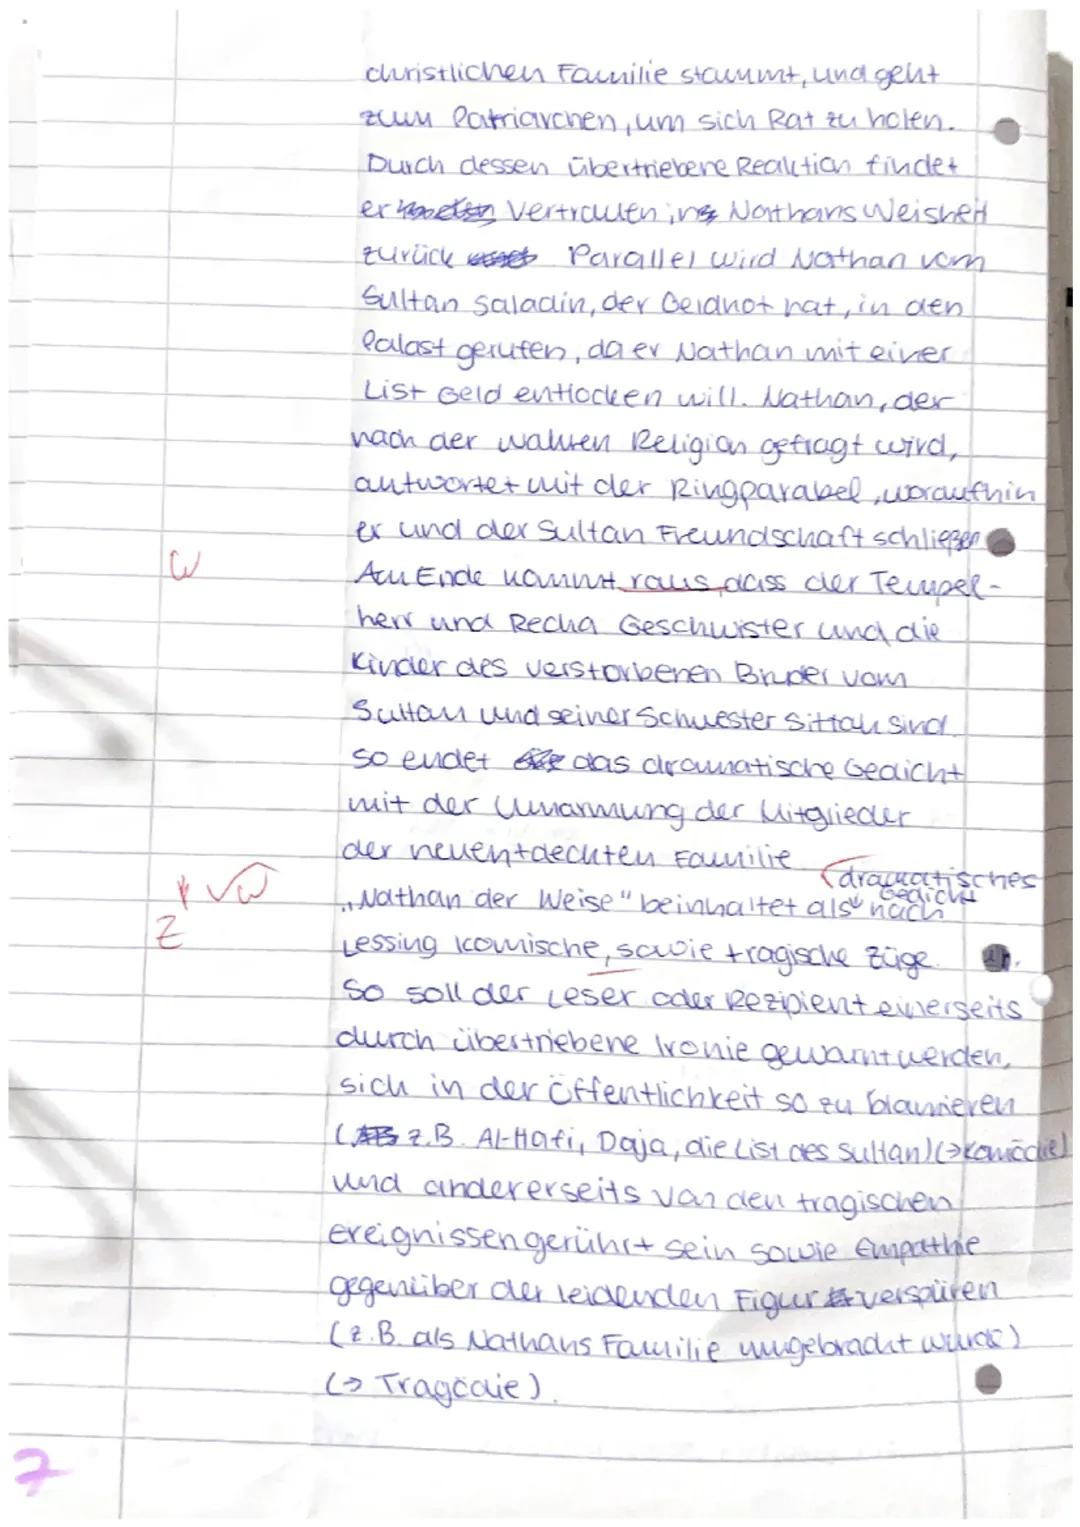 christlichen Familie stammt, und geht
zum Patriarchen, um sich Rat zu holen.
Durch dessen übertriebene Reaktion findet
er Vertrauen in Nathans Weisheit
zurück Parallel wird Nathan vom
Sultan Saladin, der Geldnot hat, in den
Palast gerufen, da er Nathan mit einer
List Geld entlocken will. Nathan, der
nach der wahren Religion gefragt wird,
antwortet mit der Ringparabel, woraufhin
er und der Sultan Freundschaft schließen
W
Am Ende kommt raus, dass der Tempel-
herr und Recha Geschwister und die
Kinder des verstorbenen Bruder vom
Sultan und seiner Schwester Sittah sind.
So endet das dramatische Gedicht
mit der Umarmung der Mitglieder
der neuentdeckten Familie
dramatisches
Gedicht
√W
„Nathan der Weise" beinhaltet als nach
Z
Lessing komische, sowie tragische Züge.
So soll der Leser oder Rezipient einerseits
durch übertriebene Ironie gewarnt werden,
sich in der Öffentlichkeit so zu blamieren
(z.B. Al-Hafi, Daja, die List des Sultan) (→Komödie)
und andererseits von den tragischen
Ereignissen gerührt sein sowie Empathie
gegenüber der leidenden Figur verspüren
(z.B. als Nathans Familie umgebracht wurde)
(→ Tragödie).
7